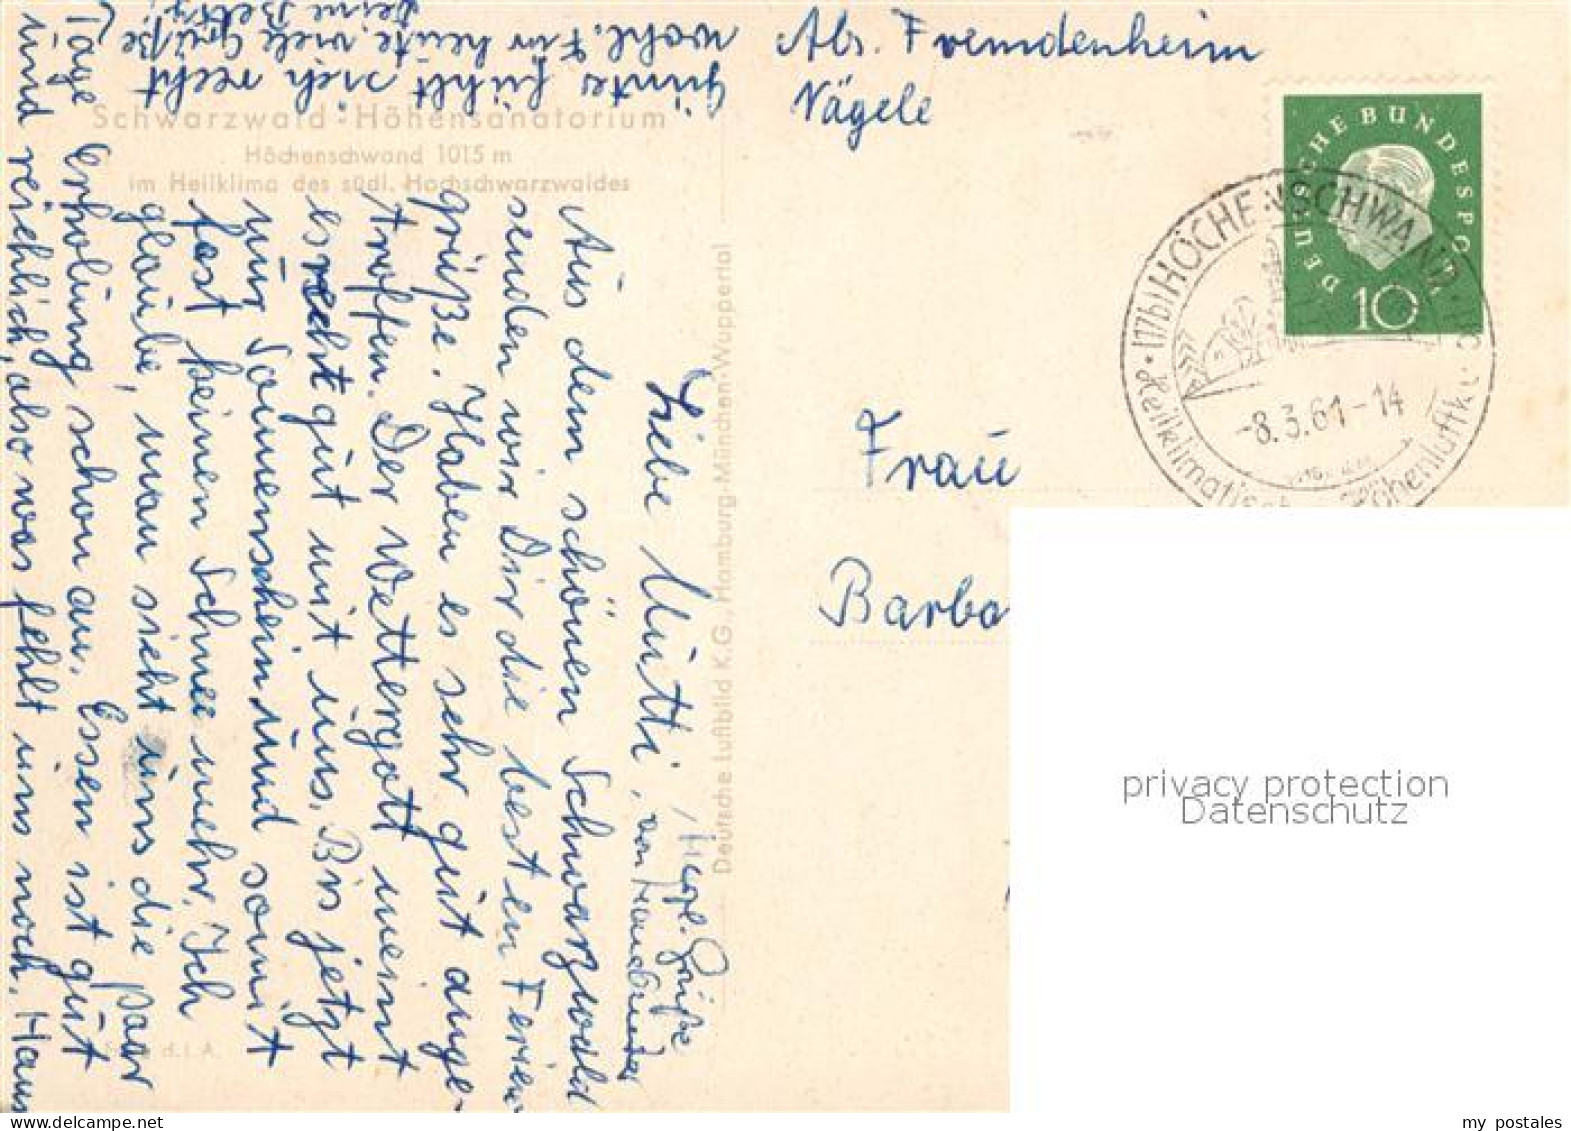 Schwarzwald-Höhensanatorium
Höchenschwand 1015 m
im Heilklima des südl. Hochschwarzwaldes
Liebe Mutti,
Aus dem schönen Schwarzwald
senden wir Dir die besten Ferien-
grüße. Haben es sehr gut ange-
troffen. Der Wettergott meint
es recht gut mit uns. Bis jetzt
nur Sonnenschein und somit
fast keinen Schnee mehr. Ich
glaube, man sieht uns die paar
Tage Erholung schon an. Essen ist gut
und reichlich, also was fehlt uns noch. Hans
Günter fühlt sich recht
wohl. Für heute viele Grüße
Deine Betty
Herzl. Grüße
von
Deutsche Luftbild K.G., Hamburg-München-Wuppertal
d.L.A.
Abs. Fremdenheim
Nägele
DEUTSCHE BUNDESPOST
10
(17b) HÖCHENSCHWAND
-8.3.61-14
Heilklimatisch
Höhenluftku
Frau
Barba
privacy protection
Datenschutz
www.delcampe.net
my_postales